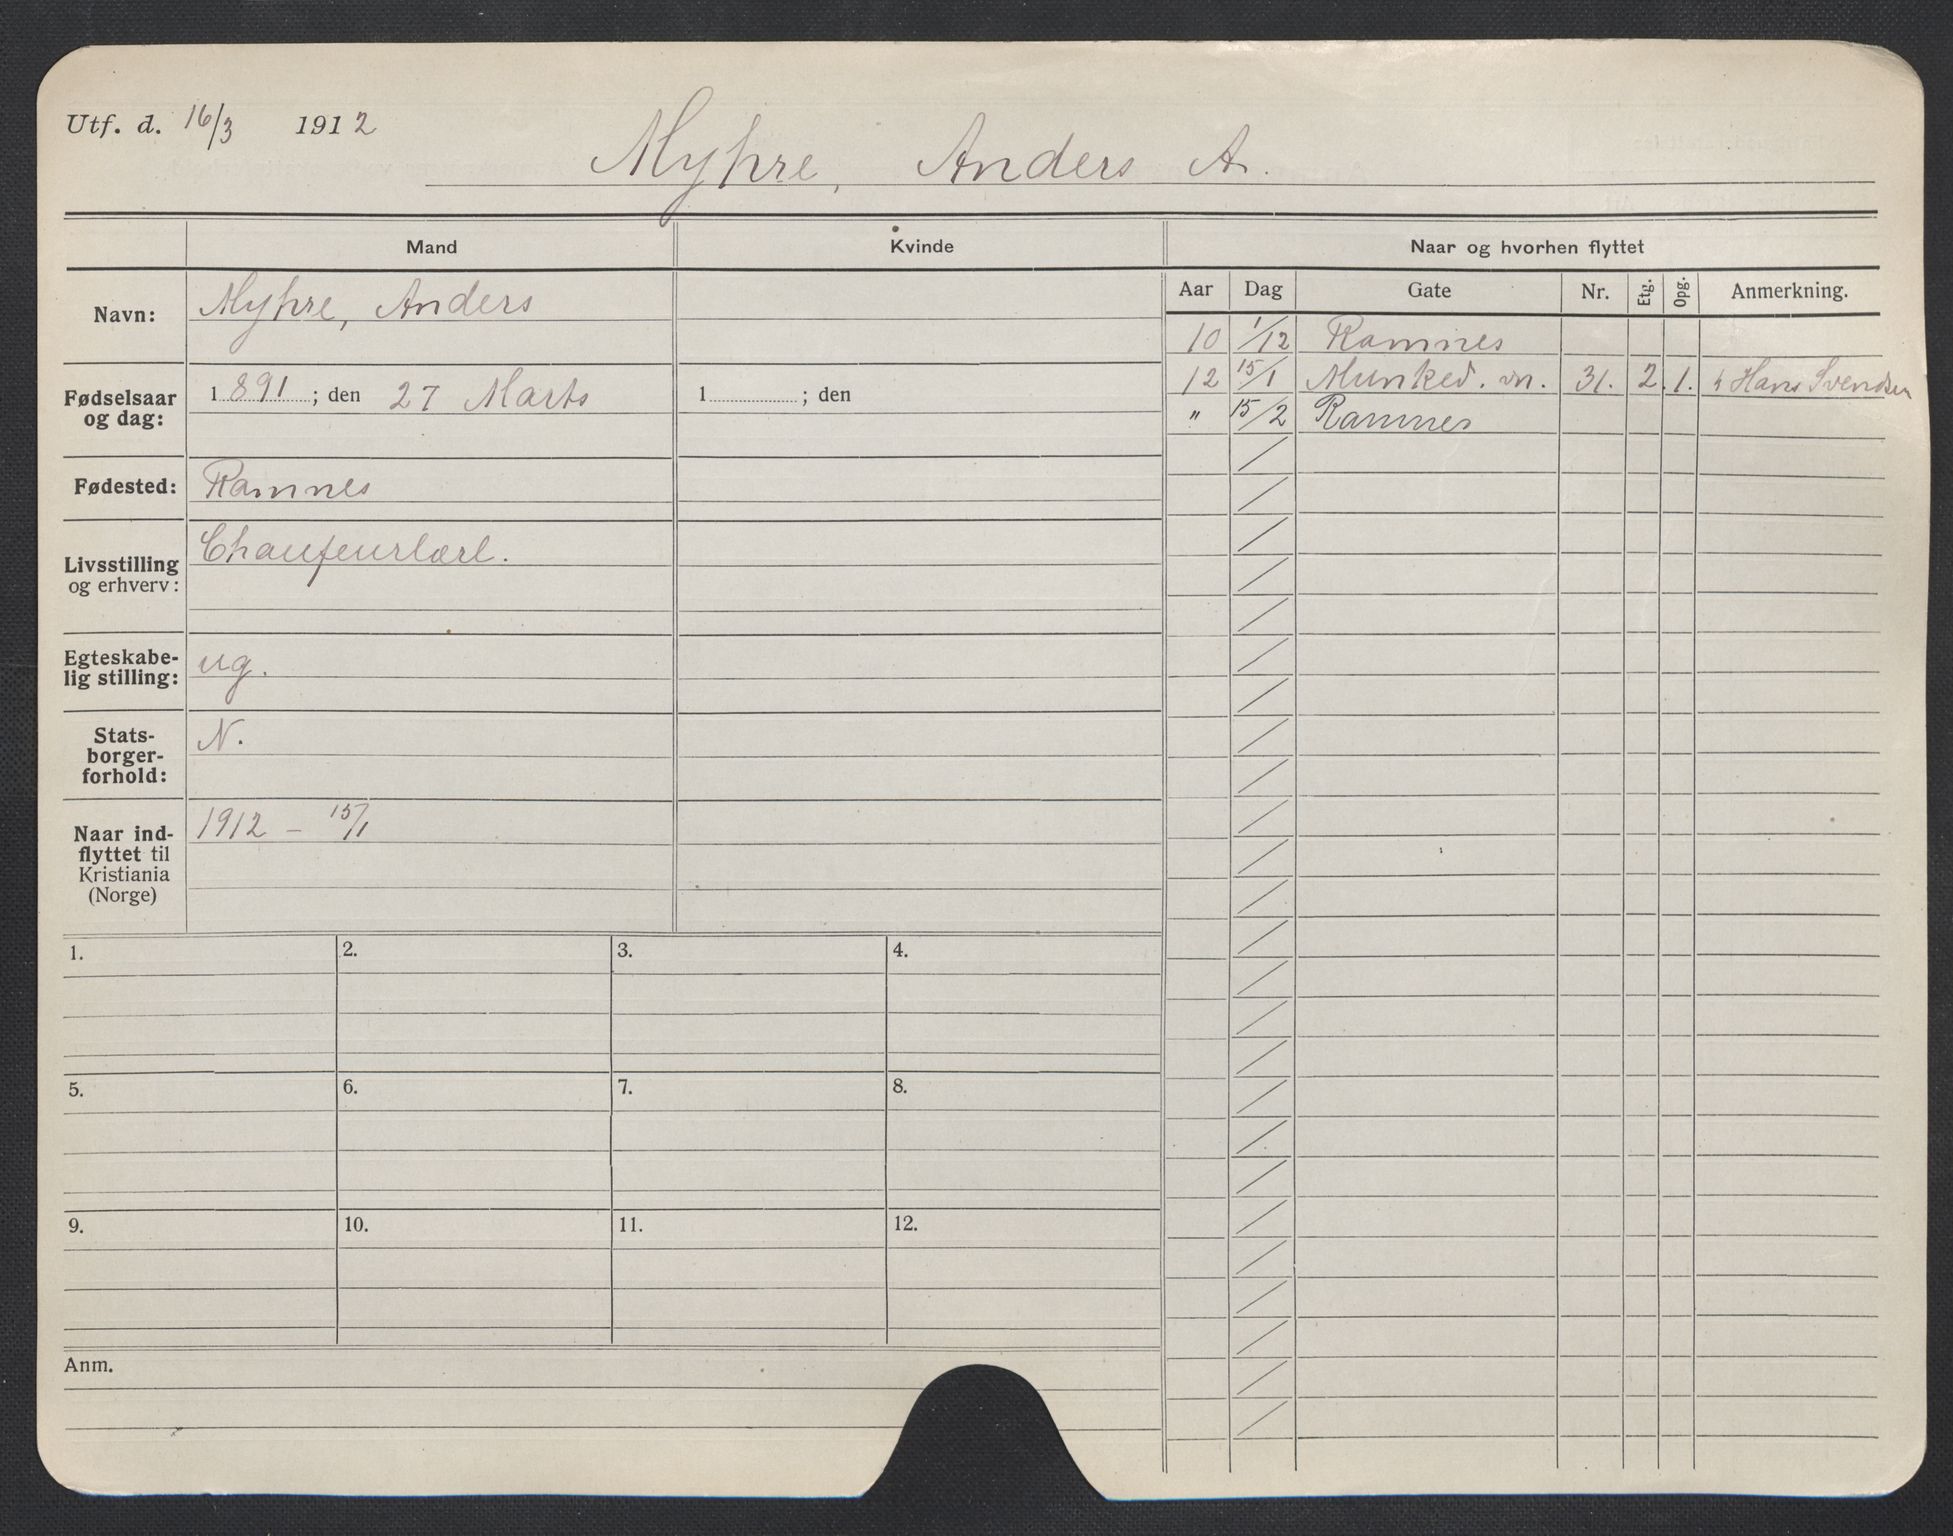 Utf. d. 16/3 1912
Myhre, Anders A.
Mand
Kvinde
Naar og hvorhen flyttet
Navn: Myhre, Anders
Fødselsaar og dag: 1891; den 27 Marts
1 ; den
Fødested: Ramnes
Livsstilling og erhverv: Chaufeurlærl.
Egteskabe-
lig stilling: ug.
Stats-
borger-
forhold: N.
Naar ind-
flyttet til
Kristiania
(Norge) 1912 – 15/1
Aar Dag Gate Nr. Etg. Opg. Anmerkning.
10 1/12 Ramnes
12 15/1 Munked. vn. 31. 2. 1. Hans Svendsen
" 15/2 Ramnes
1. 2. 3. 4.
5. 6. 7. 8.
9. 10. 11. 12.
Anm.